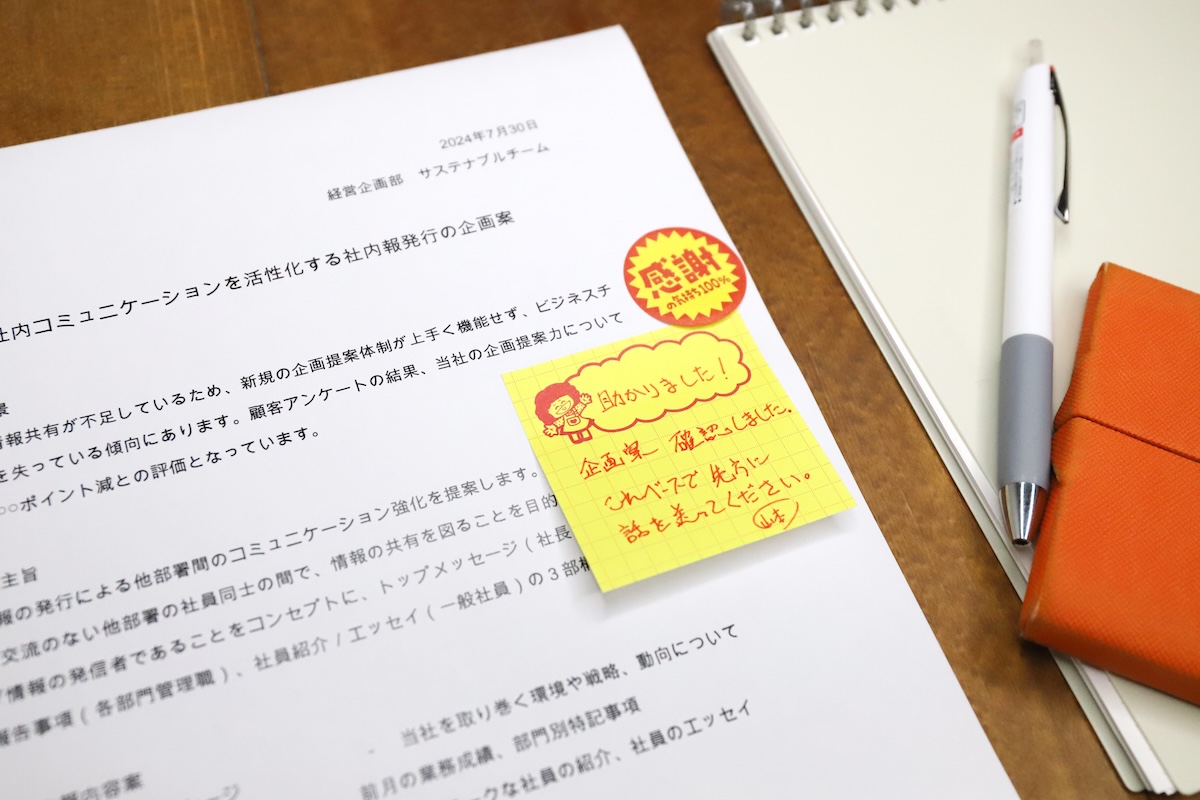 2024年7月30日
経営企画部 サステナブルチーム
社内コミュニケーションを活性化する社内報発行の企画案
景
情報共有が不足しているため、新規の企画提案体制が上手く機能せず、ビジネスチ
を失っている傾向にあります。顧客アンケートの結果、当社の企画提案力について
○○ポイント減との評価となっています。
主旨
報の発行による他部署間のコミュニケーション強化を提案します。
交流のない他部署の社員同士の間で、情報の共有を図ることを目的
情報の発信者であることをコンセプトに、トップメッセージ(社長
報告事項(各部門管理職)、社員紹介/エッセイ(一般社員)の3部構
内容案
- 当社を取り巻く環境や戦略、動向について
前月の業務成績、部門別特記事項
ークな社員の紹介、社員のエッセイ
感謝
の気持ち100%
助かりました!
企画案 確認しました。
これベースで先方に
話を送ってください。
山本